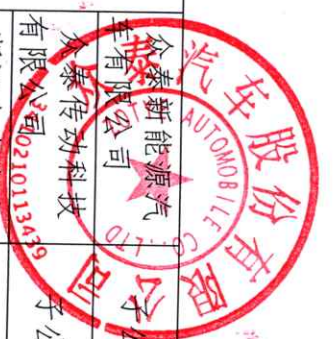 众泰新能源汽
车有限公司
子公
众泰传动科技
有限公司
子公
众泰汽车股份有限公司
AUTOMOBILE CO.,LTD
0210113439